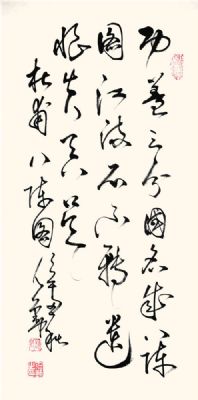 功蓋三分國名成八陣
圖江流石不轉遺
恨失吞吳
杜甫八陣圖
秋